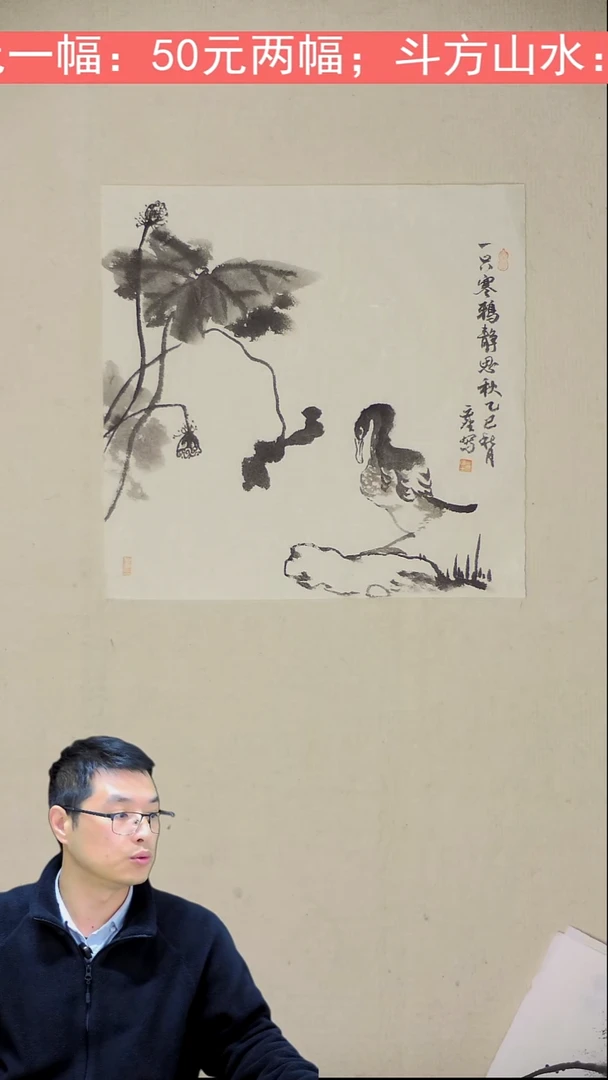 一幅：50元两幅；斗方山水：
一只寒鸦静思秋乙巳秋月
写